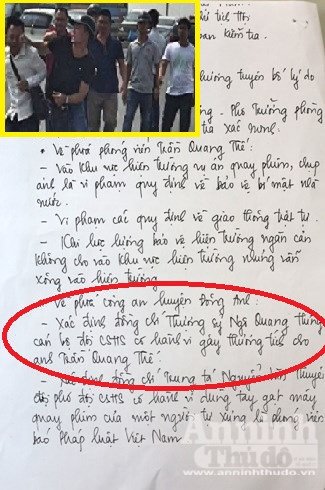 tỉ tiết thi
ban kiểm tra.
chương tuyên bố lý do
- Phó trưởng phòng
xác minh:
• Về phía phóng viên Trần Quang Thế:
- Vào khu vực hiện trường vụ án quay phim, chụp
ảnh là vi phạm quy định về bảo vệ bí mật nhà
nước.
- Vi phạm các quy định về giao thông trật tự.
- Khi lực lượng bảo vệ hiện trường ngăn cản
không cho vào khu vực hiện trường nhưng vẫn
xông vào hiện trường.
Về phía công an huyện Đông Anh:
- Xác định đồng chí Thượng sỹ Ngô Quang Hưng
cán bộ đội CSHS có hành vi gây thương tích cho
anh Trần Quang Thế.
- Xác định đồng chí Trung tá Nguyễn Thuyên
đội phó đội CSHS có hành vi dùng tay gạt máy
quay phim của một người tự xưng là phóng viên
báo Pháp luật Việt Nam
An ninh
Thủ đô
WWW.ANNINHTHUDO.VN